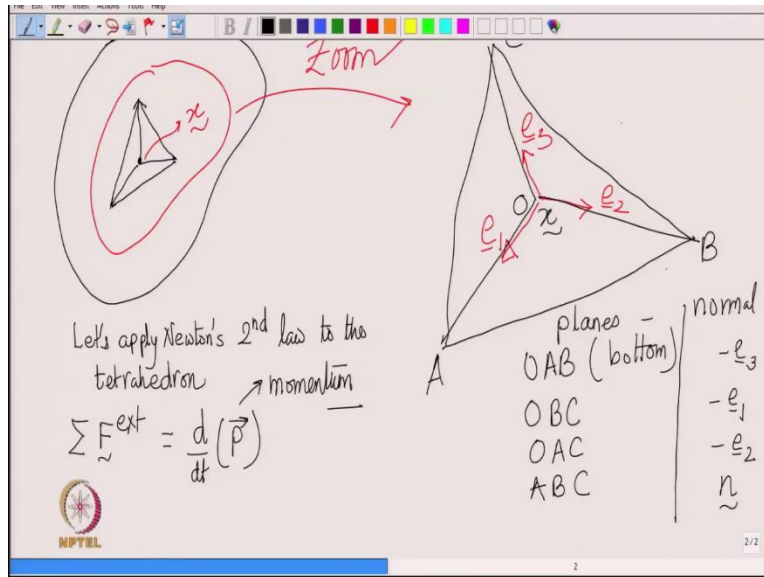 File Edit View Insert Actions Tools Help
B I
Zoom
x
C
e3
O
x
e2
e1
B
A
Let's apply Newton's 2nd law to the
tetrahedron
momentum
Σ F^ext = d/dt (P)
planes normal
OAB (bottom) -e3
OBC -e1
OAC -e2
ABC n
NPTEL
2/2
2